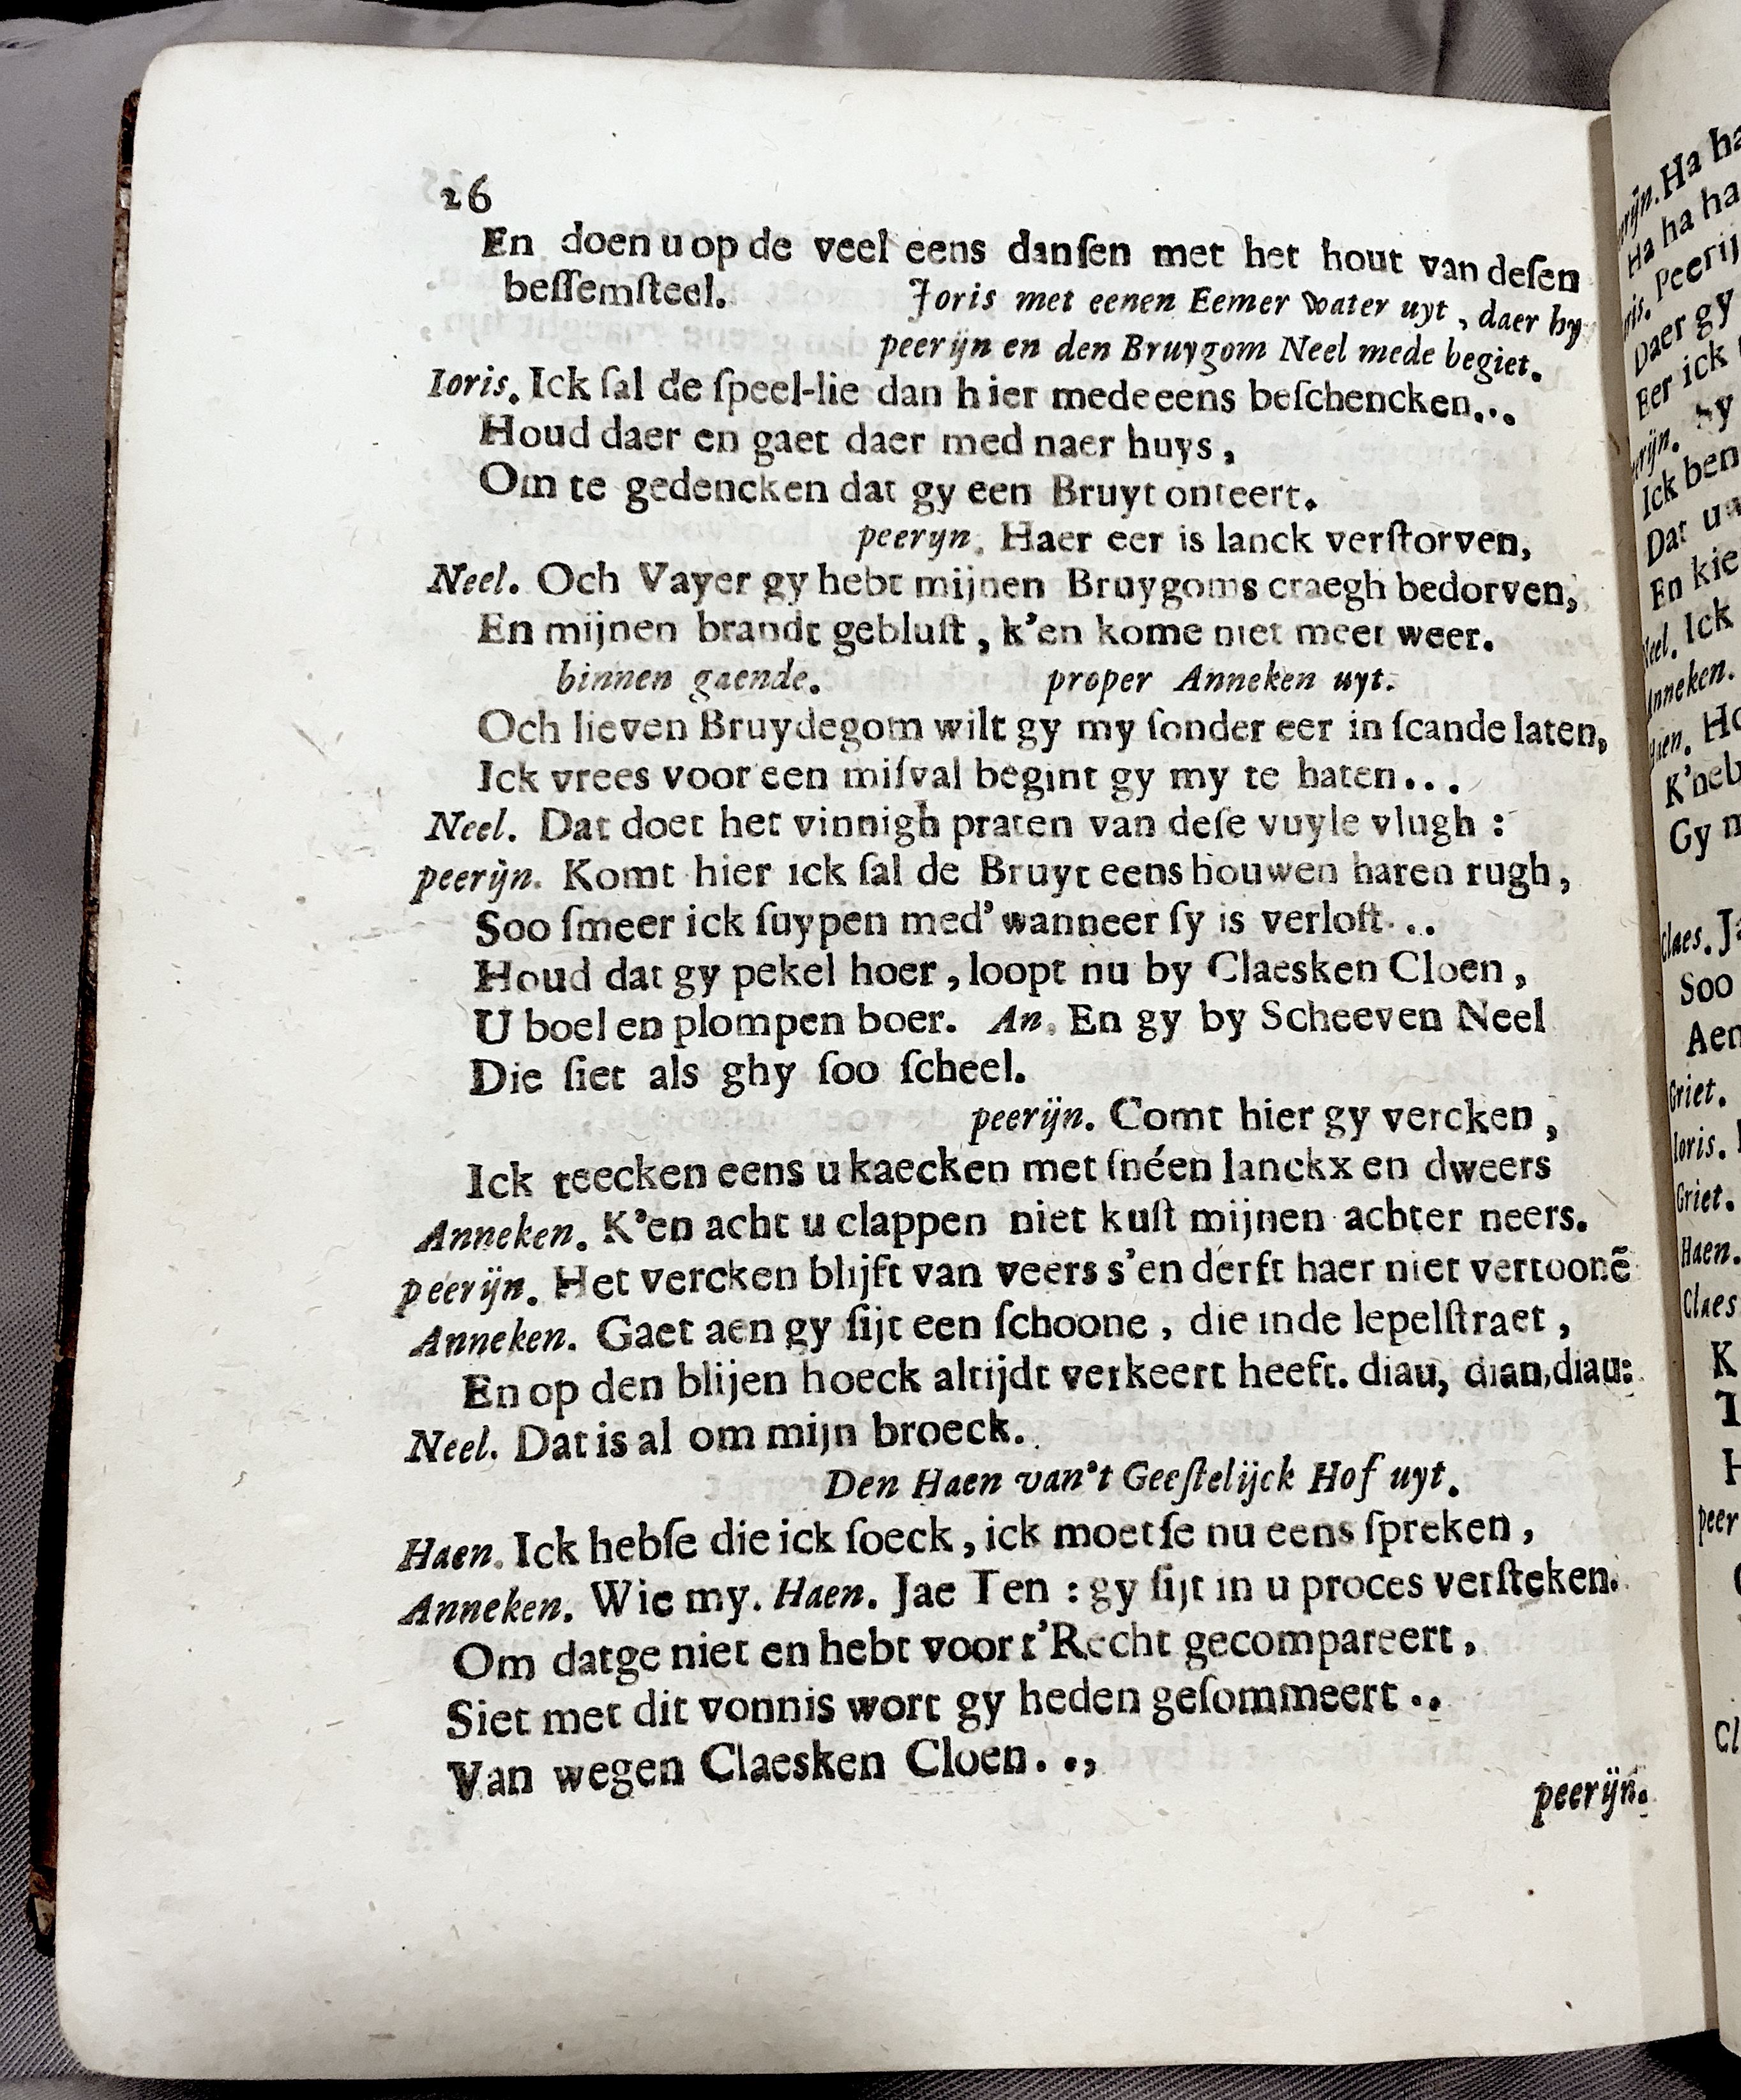 26
En doen u op de veel eens danſen met het hout van deſen
beſſemſteel. Joris met eenen Eemer water uyt, daer hy
peerijn en den Bruygom Neel mede begiet.
Ioris. Ick ſal de ſpeel-lie dan hier mede eens beſchencken...
Houd daer en gaet daer med naer huys,
Om te gedencken dat gy een Bruyt onteert.
peeryn. Haer eer is lanck verſtorven,
Neel. Och Vayer gy hebt mijnen Bruygoms craegh bedorven,
En mijnen brandt gebluſt, k'en kome niet meer weer.
binnen gaende. proper Anneken uyt.
Och lieven Bruydegom wilt gy my ſonder eer in ſcande laten,
Ick vrees voor een miſval begint gy my te haten...
Neel. Dat doet het vinnigh praten van deſe vuyle vlugh:
peerijn. Komt hier ick ſal de Bruyt eens houwen haren rugh,
Soo ſmeer ick ſuypen med' wanneer ſy is verloſt...
Houd dat gy pekel hoer, loopt nu by Claesken Cloen,
U boel en plompen boer. An. En gy by Scheeven Neel
Die ſiet als ghy ſoo ſcheel.
peerijn. Comt hier gy vercken,
Ick teecken eens u kaecken met ſnéen lanckx en dweers
Anneken. K'en acht u clappen niet kuſt mijnen achter neers.
peerijn. Het vercken blijft van veers s'en derft haer niet vertoonẽ
Anneken. Gaet aen gy ſijt een ſchoone, die inde lepelſtraet,
En op den blijen hoeck altijdt verkeert heeft. diau, dian, diau:
Neel. Dat is al om mijn broeck.
Den Haen van't Geeſtelijck Hof uyt.
Haen. Ick hebſe die ick ſoeck, ick moetſe nu eens ſpreken,
Anneken. Wie my. Haen. Jae Ten: gy ſijt in u proces verſteken.
Om datge niet en hebt voor t'Recht gecompareert,
Siet met dit vonnis wort gy heden geſommeert..
Van wegen Claesken Cloen..,
peerijn.
Ha ha
Ha ha ha
Daer gy
Eer ick
Ick ben
En kie
Neel. Ick
Anneken.
Gy
Claes. Ja
Soo
Griet.
Ioris.
Griet.
Haen.
Claes
K
peer
Cl